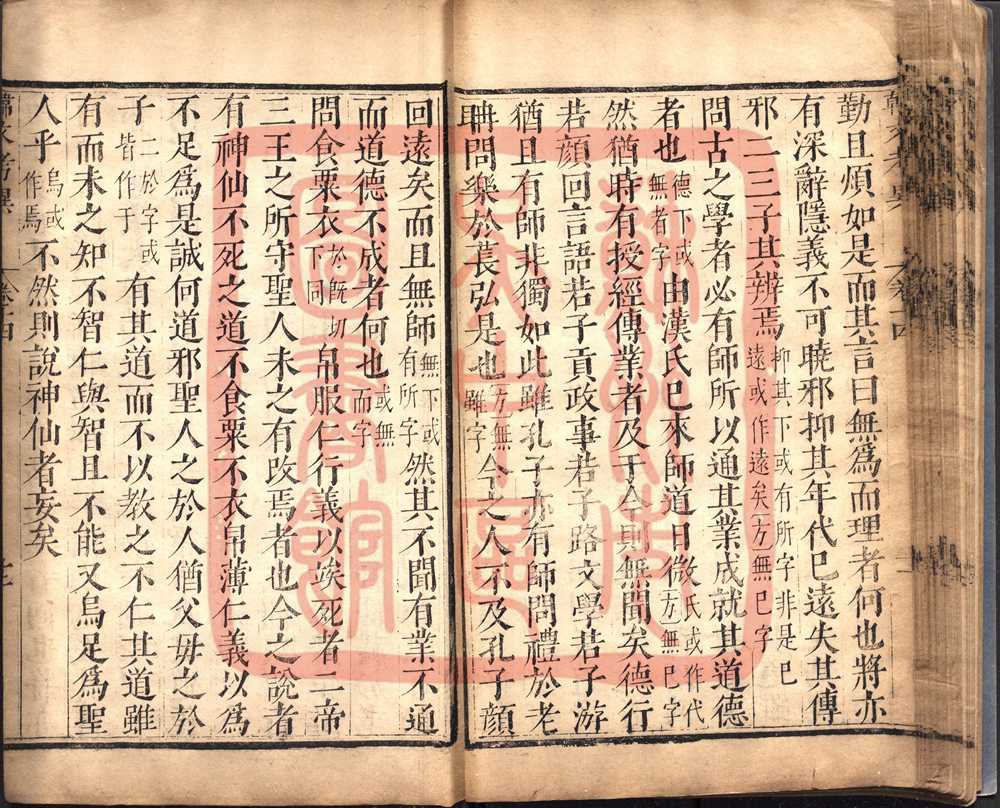 勤且煩如是而其言曰無爲而理者何也將亦
有深辭隱義不可曉邪抑其年代已遠失其傳
邪二三子其辨焉抑其下或有所字非是已遠或作遠矣方無已字
問古之學者必有師所以通其業成就其道德
者也德下或無者字由漢氏已來師道日微氏或作代方無已字
然猶時有授經傳業者及于今則無聞矣德行
若顔回言語若子貢政事若子路文學若子游
猶且有師非獨如此雖孔子亦有師問禮於老
聃問樂於萇弘是也方無雖字今之人不及孔子顔
回遠矣而且無師無下或有所字然其不聞有業不通
而道德不成者何也或無而字
問食粟衣於既切下同帛服仁行義以竢死者二帝
三王之所守聖人未之有改焉者也今之說者
有神仙不死之道不食粟不衣帛薄仁義以爲
不足爲是誠何道邪聖人之於人猶父母之於
子二於字或皆作于有其道而不以教之不仁其道雖
有而未之知不智仁與智且不能又烏足爲聖
人乎烏或作焉不然則說神仙者妄矣
韓文考異
卷十四